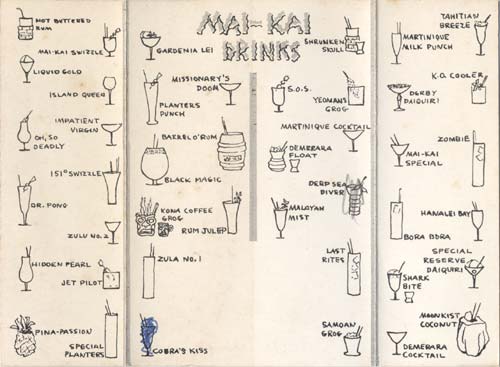 MAI-KAI
DRINKS
HOT BUTTERED
RUM
MAI-KAI SWIZZLE
LIQUID GOLD
ISLAND QUEEN
IMPATIENT
VIRGIN
OH, SO
DEADLY
151° SWIZZLE
DR. FONG
ZULU NO. 2
HIDDEN PEARL
JET PILOT
PINA-PASSION
SPECIAL
PLANTERS
GARDENIA LEI
MISSIONARY'S
DOOM
PLANTERS
PUNCH
BARREL O'RUM
BLACK MAGIC
KONA COFFEE
GROG
RUM JULEP
ZULA NO. 1
COBRA'S KISS
SHRUNKEN
SKULL
S.O.S.
YEOMAN'S
GROG
MARTINIQUE COCKTAIL
DEMERARA
FLOAT
DEEP SEA
DIVER
MALAYAN
MIST
LAST
RITES
SAMOAN
GROG
TAHITIAN
BREEZE
MARTINIQUE
MILK PUNCH
K.O. COOLER
DERBY
DAIQUIRI
ZOMBIE
MAI-KAI
SPECIAL
HANALEI BAY
BORA BORA
SPECIAL
RESERVE
DAIQUIRI
SHARK
BITE
MOONKIST
COCONUT
DEMERARA
COCKTAIL